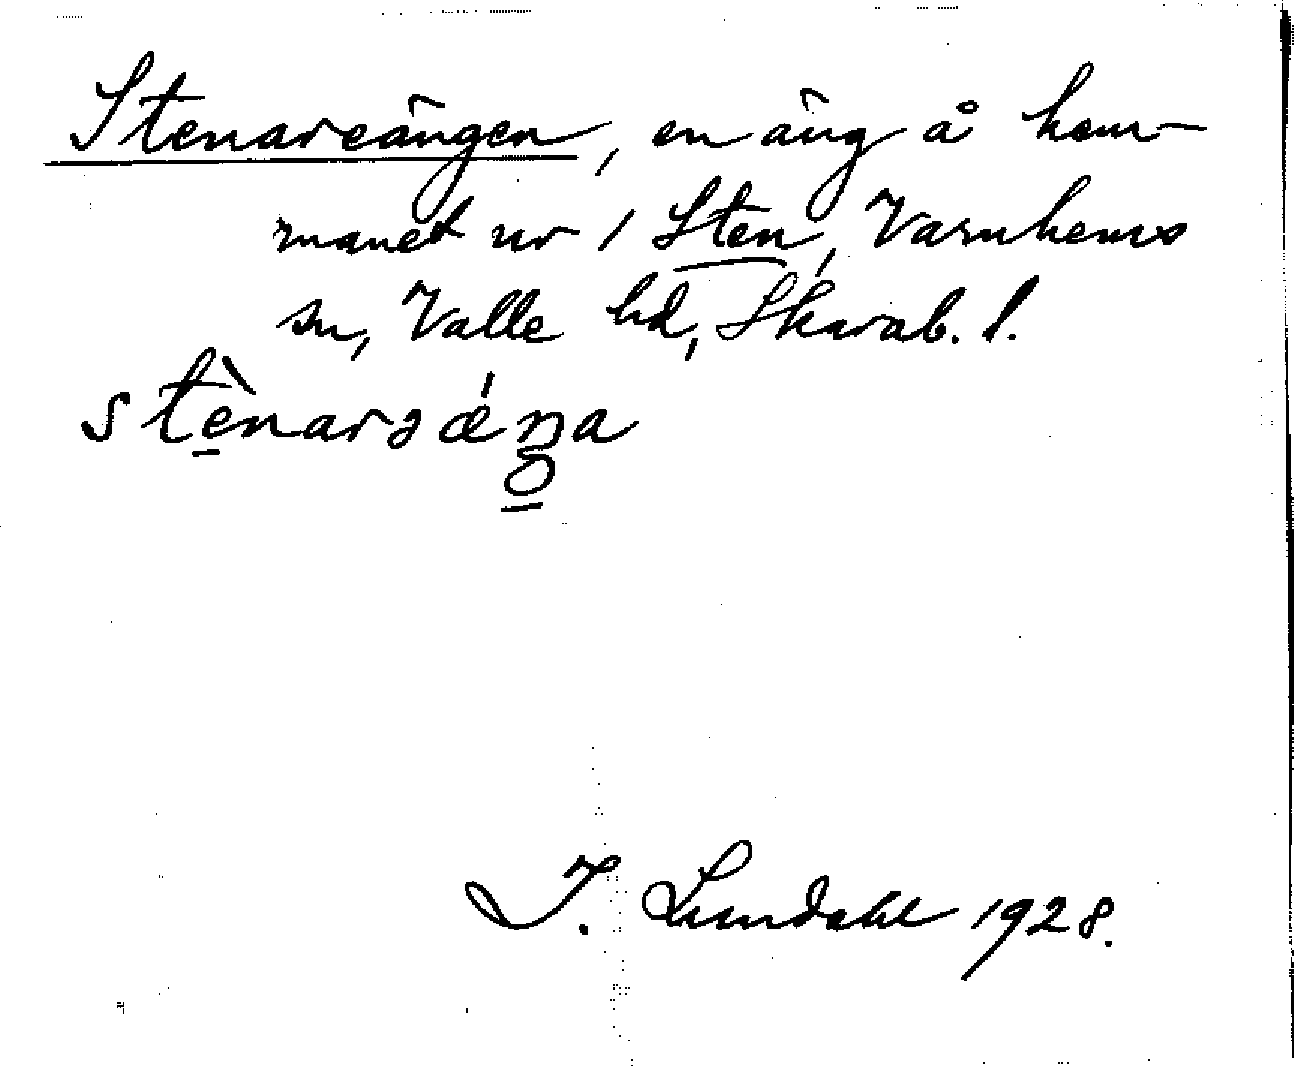 Stenareängen, en äng å hem-
manet nr 1 Sten, Varnhems
sn, Valle hd, Skarab. l.
stènarə ǽŋa
I. Lundahl 1928.